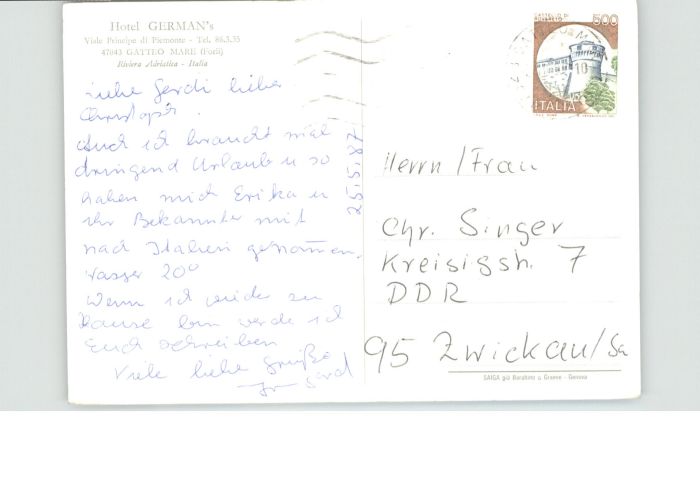 Hotel GERMAN's
Viale Principe di Piemonte - Tel. 86.3.35
47043 GATTEO MARE (Forlì)
Riviera Adriatica - Italia
Liebe Gerdi lieber
Christoph.
Auch ich braucht mal
dringend Urlaub u so
haben mich Erika u
ihr Bekannter mit
nach Italien genommen.
Wasser 20°
Wenn ich wieder zu
Hause bin werde ich
Euch schreiben
Viele liebe Grüße
Gerd
25.5.87
500
ITALIA
Herrn/Frau
Chr. Singer
Kreisigstr. 7
DDR
95 Zwickau/Sa
SAIGA già Barabino & Graeve - Genova